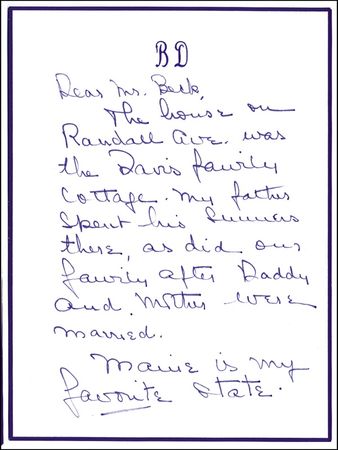 BD
Dear Mr. Beck,
The house on
Randall Ave. was
the Davis family
cottage. My father
spent his summers
there, as did our
family after Daddy
and Mother were
married.
Maine is my
favorite state.